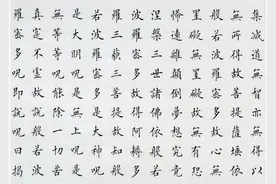 集滅道無智亦無得以
無所得故菩提薩埵依
般若波羅蜜多故心無
罣礙無罣礙故無有恐
怖遠離顛倒夢想究竟
涅槃三世諸佛依般若
波羅蜜多故得阿耨多
羅三藐三菩提故知般
若波羅蜜多是大神呪
是大明呪是無上呪是
無等等呪能除一切苦
真實不虛故說般若波
羅蜜多呪即說呪曰揭